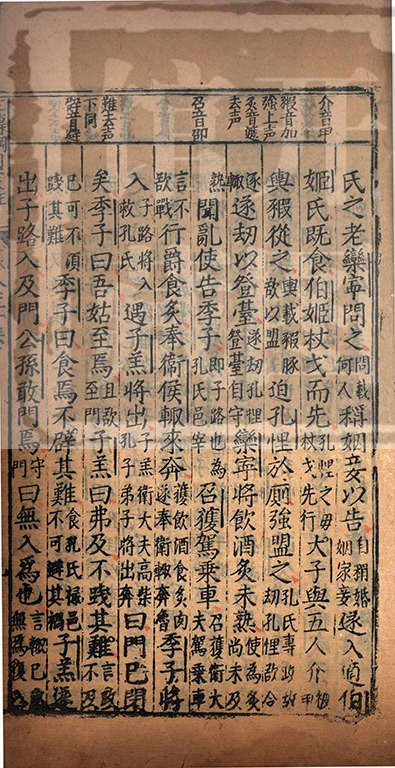 介音甲
豭音加
強上声
炙音嫬
去声
召音卲
難去声
下同
辟音避
氏之老欒寧問之問載何人稱姻妾以告自稱婚姻家妾遂入適伯
姬氏既食伯姬杖戈而先孔悝之母杖戈先行大子與五人介被甲
輿豭從之輿載豭豚欲以盟迫孔悝於廁強盟之孔氏專政故劫孔悝欲令
逐輒遂劫以登臺遂劫孔悝登臺自守欒寧將飲酒炙未熟使為炙尚未及
熟聞亂使告季子即子路也為孔氏邑宰召獲駕乗車召獲衛大夫駕乗車
言不欲戰行爵食炙奉衛侯輒來奔獲飲酒食炙肉遂奉衛輒奔魯季子將
入子路將入救孔氏遇子羔將出子羔衛大夫高柴孔子弟子將出奔曰門已閉
矣季子曰吾姑至焉且欲至門子羔曰弗及不踐其難言政不及
已可不須踐其難季子曰食焉不辟其難食孔氏禄邑不可避其禍子羔遂
出子路入及門公孫敢門焉守門曰無入為也言輒已無為復入